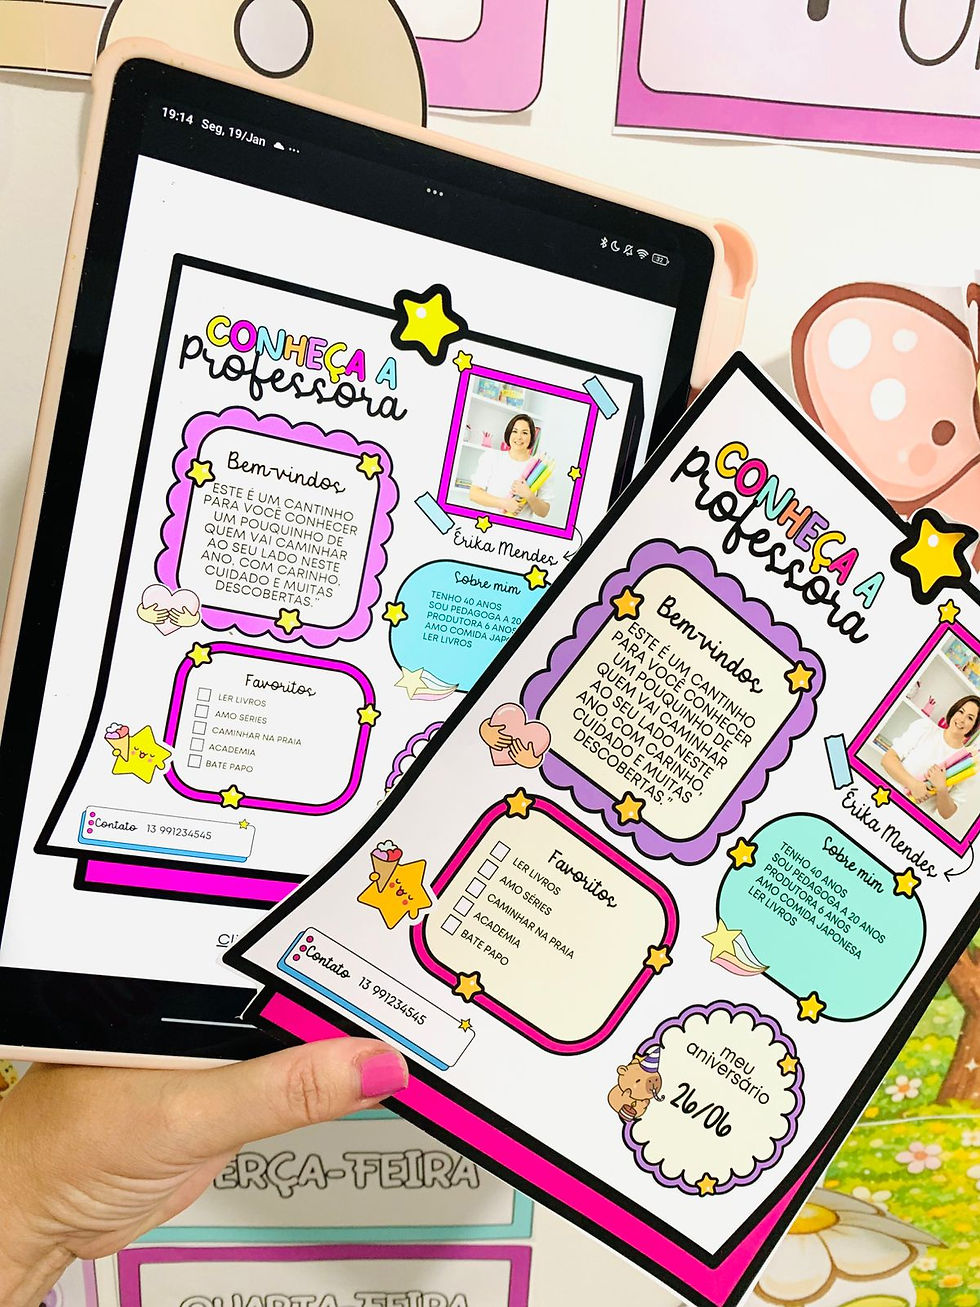 19:14 Seg, 19/Jan
32
CONHEÇA A
professora
Bem-vindos
ESTE É UM CANTINHO
PARA VOCÊ CONHECER
UM POUQUINHO DE
QUEM VAI CAMINHAR
AO SEU LADO NESTE
ANO, COM CARINHO,
CUIDADO E MUITAS
DESCOBERTAS."
Érika Mendes
Sobre mim
TENHO 40 ANOS
SOU PEDAGOGA A 20
PRODUTORA 6 ANOS
AMO COMIDA
LER LIVROS
Favoritos
LER LIVROS
AMO SERIES
CAMINHAR NA PRAIA
ACADEMIA
BATE PAPO
Contato 13 991234545
CONHEÇA A
professora
Bem-vindos
ESTE É UM CANTINHO
PARA VOCÊ CONHECER
UM POUQUINHO DE
QUEM VAI CAMINHAR
AO SEU LADO NESTE
ANO, COM CARINHO,
CUIDADO E MUITAS
DESCOBERTAS."
Érika Mendes
Sobre mim
TENHO 40 ANOS
SOU PEDAGOGA A 20 ANOS
PRODUTORA 6 ANOS
AMO COMIDA JAPONESA
LER LIVROS
Favoritos
LER LIVROS
AMO SERIES
CAMINHAR NA PRAIA
ACADEMIA
BATE PAPO
Contato 13 991234545
meu
aniversário
26/06
ERÇA-FEIRA
QUARTA-FEIRA